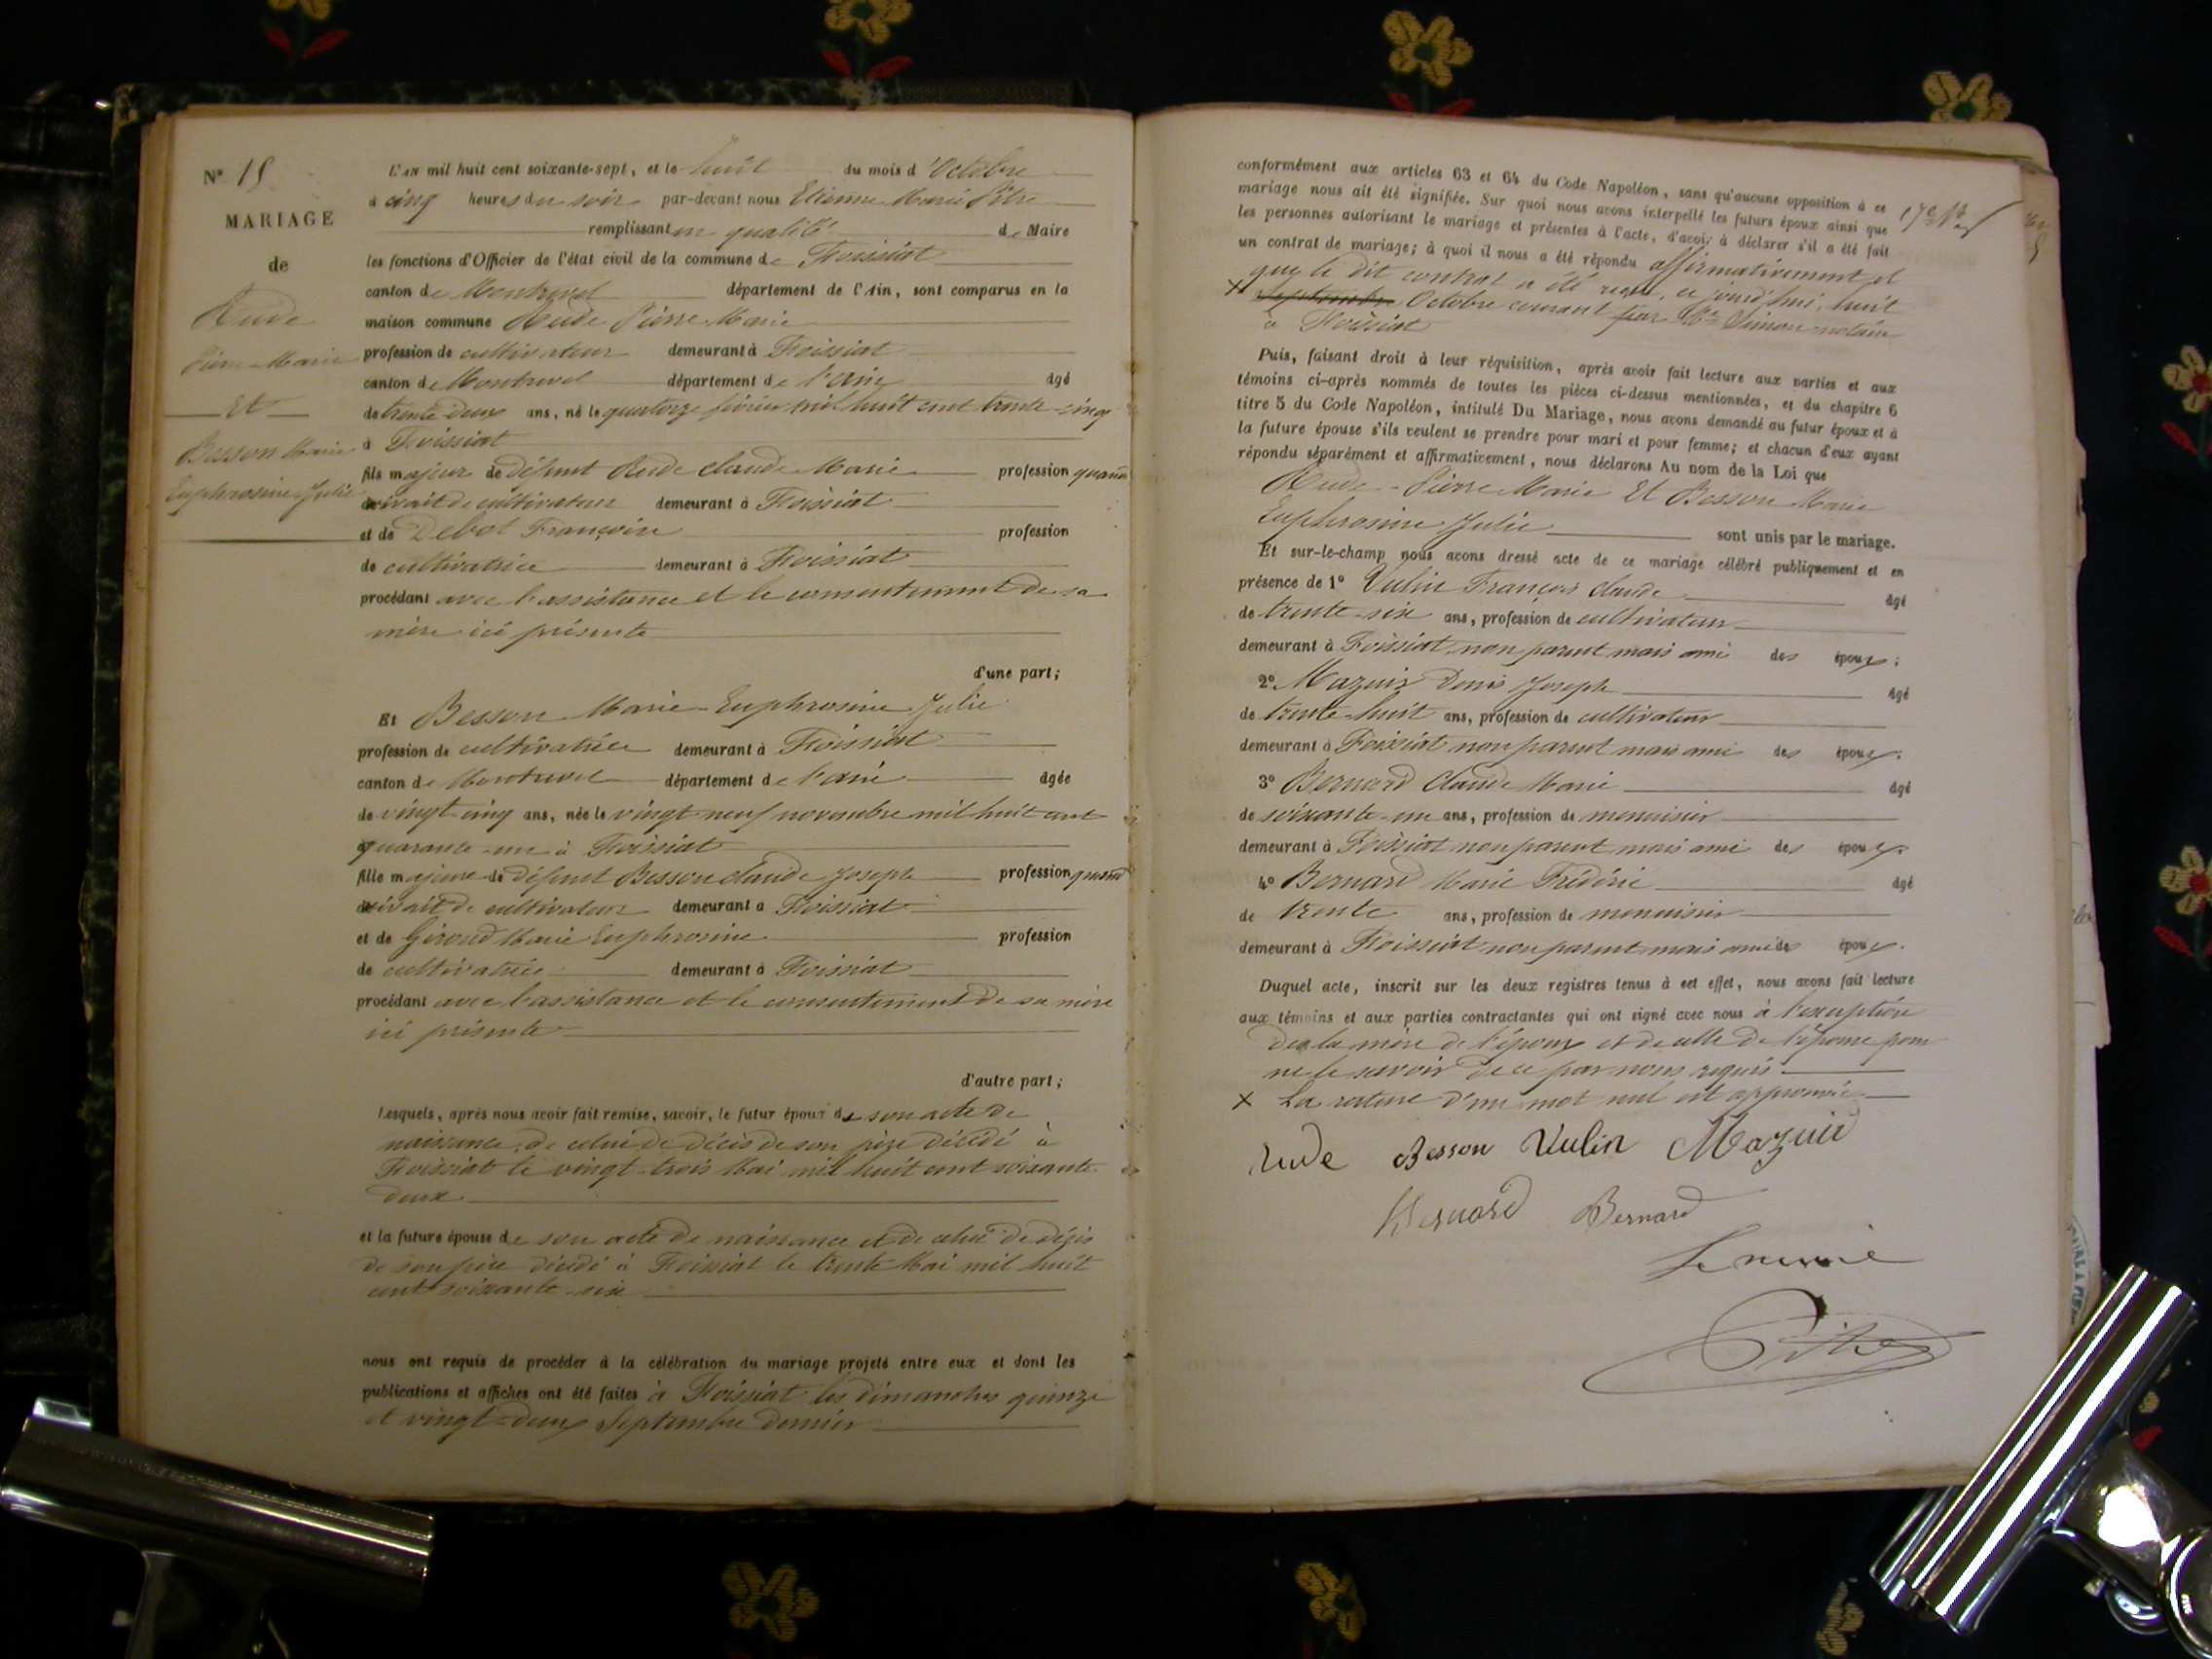 Nº 15
MARIAGE
de
Rude
Pierre Marie
Et
Besson Marie
Euphrosine Julie
L'AN mil huit cent soixante-sept, et le huit du mois d'Octobre
à cinq heures du soir par-devant nous Etienne Marie Pitre
remplissant en qualité de Maire
les fonctions d'Officier de l'état civil de la commune de Foissiat
canton de Montrevel département de l'Ain, sont comparus en la
maison commune Rude Pierre Marie
profession de cultivateur demeurant à Foissiat
canton de Montrevel département de l'ain âgé
de trente deux ans, né le quatorze février mil huit cent trente-cinq
à Foissiat
fils majeur de défunt Rude Claude Marie profession quand
vivait de cultivateur demeurant à Foissiat
et de Debot Françoise profession
de cultivatrice demeurant à Foissiat
procédant avec l'assistance et le consentement de sa
mère ici présente
d'une part;
Et Besson Marie-Euphrosine Julie
profession de cultivatrice demeurant à Foissiat
canton de Montrevel département de l'ain âgée
de vingt-cinq ans, née le vingt neuf novembre mil huit cent
quarante-un à Foissiat
fille majeure de défunt Besson Claude Joseph profession quand
vivait de cultivateur demeurant à Foissiat
et de Giroud Marie Euphrosine profession
de cultivatrice demeurant à Foissiat
procédant avec l'assistance et le consentement de sa mère
ici présente
d'autre part;
Lesquels, après nous avoir fait remise, savoir, le futur époux de son acte de
naissance, de celui de décès de son père décédé à
Foissiat le vingt-trois Mai mil huit cent soixante-
deux
et la future épouse de son acte de naissance et de celui de décès
de son père décédé à Foissiat le trente Mai mil huit
cent soixante-six
nous ont requis de procéder à la célébration du mariage projeté entre eux et dont les
publications et affiches ont été faites à Foissiat les dimanches quinze
et vingt-deux Septembre dernier
conformément aux articles 63 et 64 du Code Napoléon, sans qu'aucune opposition à ce
mariage nous ait été signifiée. Sur quoi nous avons interpellé les futurs époux ainsi que
les personnes autorisant le mariage et présentes à l'acte, d'avoir à déclarer s'il a été fait
un contrat de mariage; à quoi il nous a été répondu affirmativement et
que le dit contrat a été reçu, ce jourd'hui, huit
X Septembre Octobre courant par Me Simon notaire
à Foissiat
Puis, faisant droit à leur réquisition, après avoir fait lecture aux parties et aux
témoins ci-après nommés de toutes les pièces ci-dessus mentionnées, et du chapitre 6
titre 5 du Code Napoléon, intitulé Du Mariage, nous avons demandé au futur époux et à
la future épouse s'ils veulent se prendre pour mari et pour femme; et chacun d'eux ayant
répondu séparément et affirmativement, nous déclarons Au nom de la Loi que
Rude-Pierre Marie Et Besson Marie
Euphrosine Julie sont unis par le mariage.
Et sur-le-champ nous avons dressé acte de ce mariage célébré publiquement et en
présence de 1º Vulin François Claude âgé
de trente-six ans, profession de cultivateur
demeurant à Foissiat, non parent mais ami des époux;
2º Mazuir Denis Joseph âgé
de trente huit ans, profession de cultivateur
demeurant à Foissiat non parent mais ami des époux.
3º Bernard Claude Marie âgé
de soixante-un ans, profession de menuisier
demeurant à Foissiat non parent mais ami des époux.
4º Bernard Marie Frédéric âgé
de trente ans, profession de menuisier
demeurant à Foissiat non parent mais ami des époux.
Duquel acte, inscrit sur les deux registres tenus à cet effet, nous avons fait lecture
aux témoins et aux parties contractantes qui ont signé avec nous à l'exception
de la mère de l'époux et de celle de l'épouse pour
ne le savoir de ce par nous requis
X La rature d'un mot nul est approuvée
Rude Besson Vulin Mazuir
Bernard Bernard
Le maire
Pitre